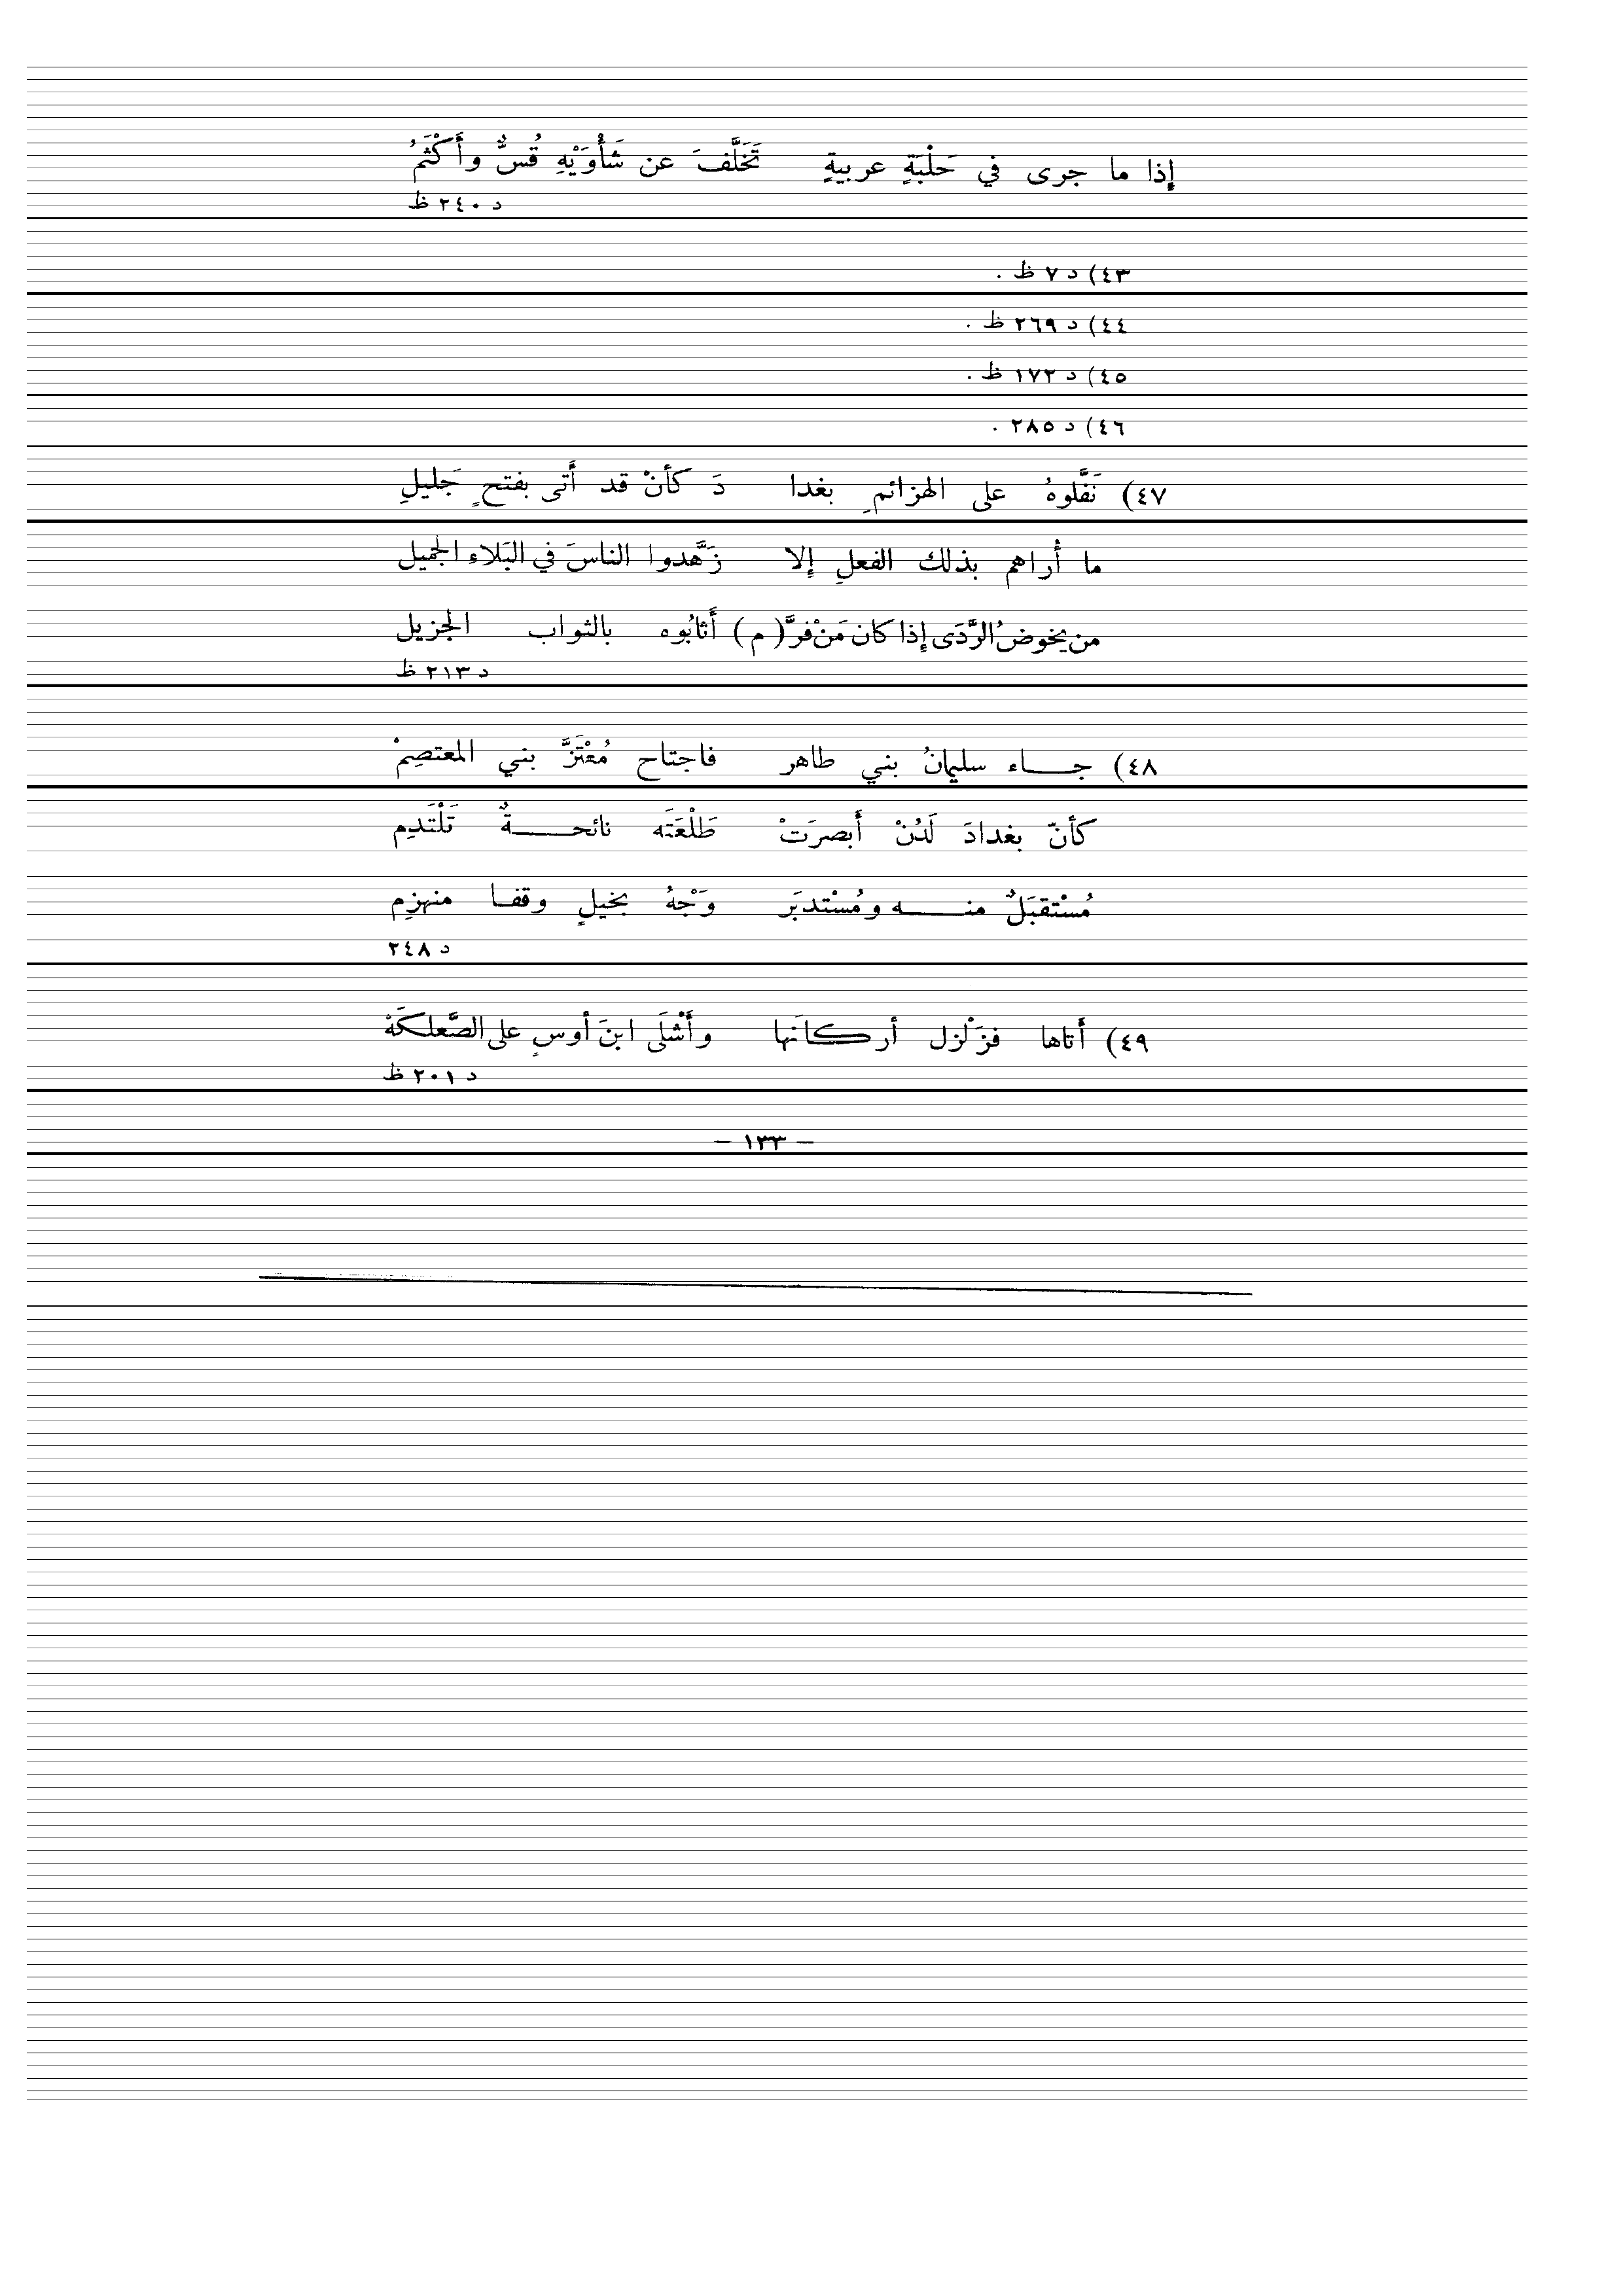 إذا ما جرى في حَلْبَةٍ عربيةٍ تَخَلَّفَ عن شَأْوَيْهِ قُسٌّ وأَكْثَمُ
د ٢٤٠ ظ
٤٣) د ٧ ظ .
٤٤) د ٢٦٩ ظ .
٤٥) د ١٧٢ ظ .
٤٦) د ٢٨٥ .
٤٧) نَفَّلوهُ على الهزائمِ بغدا دَ كأنْ قد أَتى بفتحٍ جَليلِ
ما أُراهم بذلك الفعلِ إلا زَهَّدوا الناسَ في البَلاءِ الجميل
من يخوضُ الرَّدَى إذا كان مَنْ فرَّ (م) أَثابُوه بالثواب الجزيل
د ٢١٣ ظ
٤٨) جـاء سليمانُ بني طاهر فاجتاح مُعْتَزَّ بني المعتصِمْ
كأنّ بغدادَ لَدُنْ أبصرَتْ طَلْعَتَه نائحـةٌ تَلْتَدِم
مُسْتقبَلٌ منـه ومُسْتدبَر وَجْهُ بخيلٍ وقفـا منهزِم
د ٢٤٨
٤٩) أَتاها فزَلْزل أركانَها وأَشْلَى ابنَ أوسٍ على الصَّعلكَهْ
د ٢٠١ ظ
– ١٣٣ –